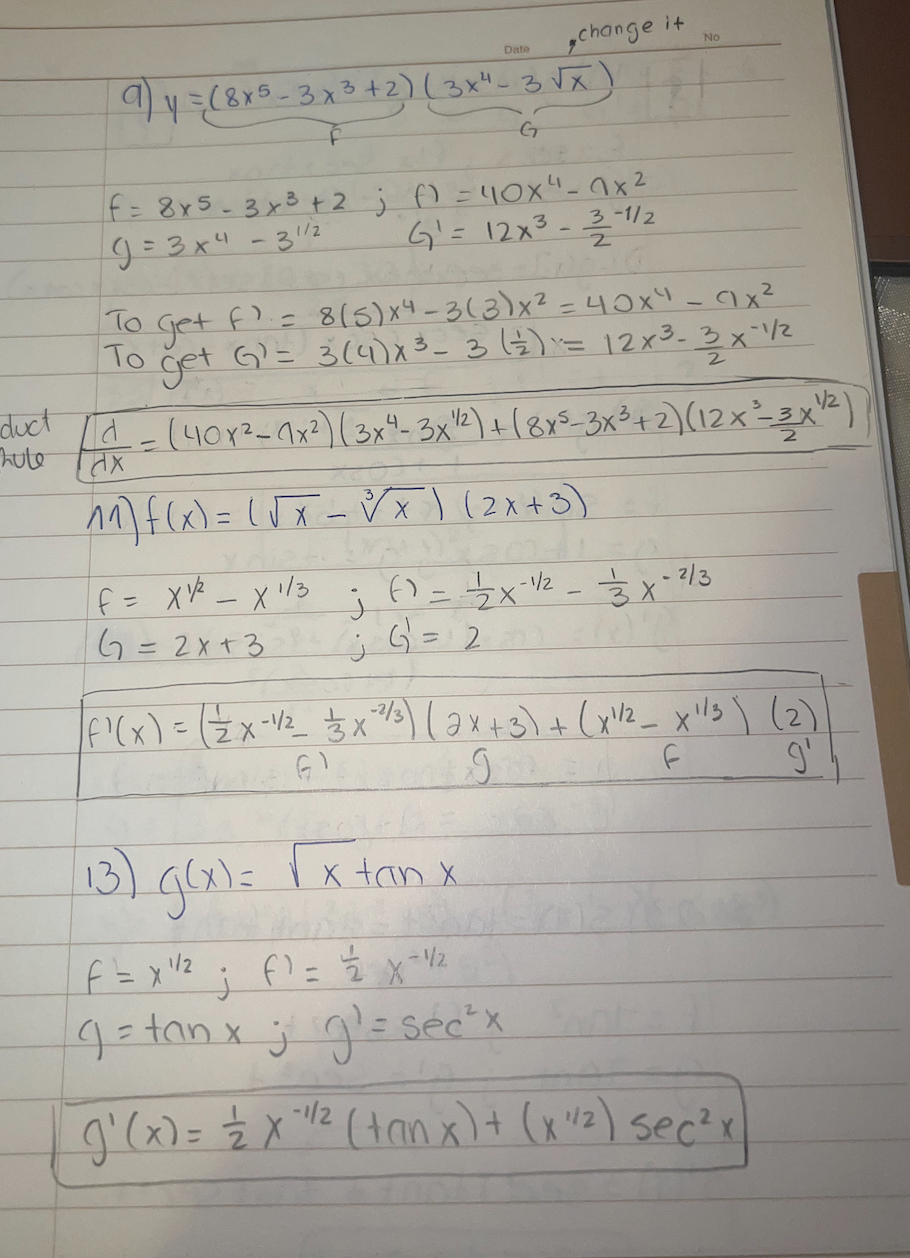 , change it
Date No
9) y = (8x⁵ - 3x³ + 2) (3x⁴ - 3√x)
F G
f = 8x⁵ - 3x³ + 2 ; f' = 40x⁴ - 9x²
g = 3x⁴ - 3^1/2 G' = 12x³ - 3/2^-1/2
To get f' = 8(5)x⁴ - 3(3)x² = 40x⁴ - 9x²
To get G' = 3(4)x³ - 3(1/2) = 12x³ - 3/2 x^-1/2
duct
rule
d/dx = (40x² - 9x²)(3x⁴ - 3x^1/2) + (8x⁵ - 3x³ + 2)(12x³ - 3/2 x^1/2)
11) f(x) = (√x - ³√x) (2x+3)
f = x^1/2 - x^1/3 ; f' = 1/2 x^-1/2 - 1/3 x^-2/3
G = 2x+3 ; G' = 2
f'(x) = (1/2 x^-1/2 - 1/3 x^-2/3) (2x+3) + (x^1/2 - x^1/3) (2)
f' g f g'
13) g(x) = √x tan x
f = x^1/2 ; f' = 1/2 x^-1/2
g = tan x ; g' = sec²x
g'(x) = 1/2 x^-1/2 (tan x) + (x^1/2) sec²x